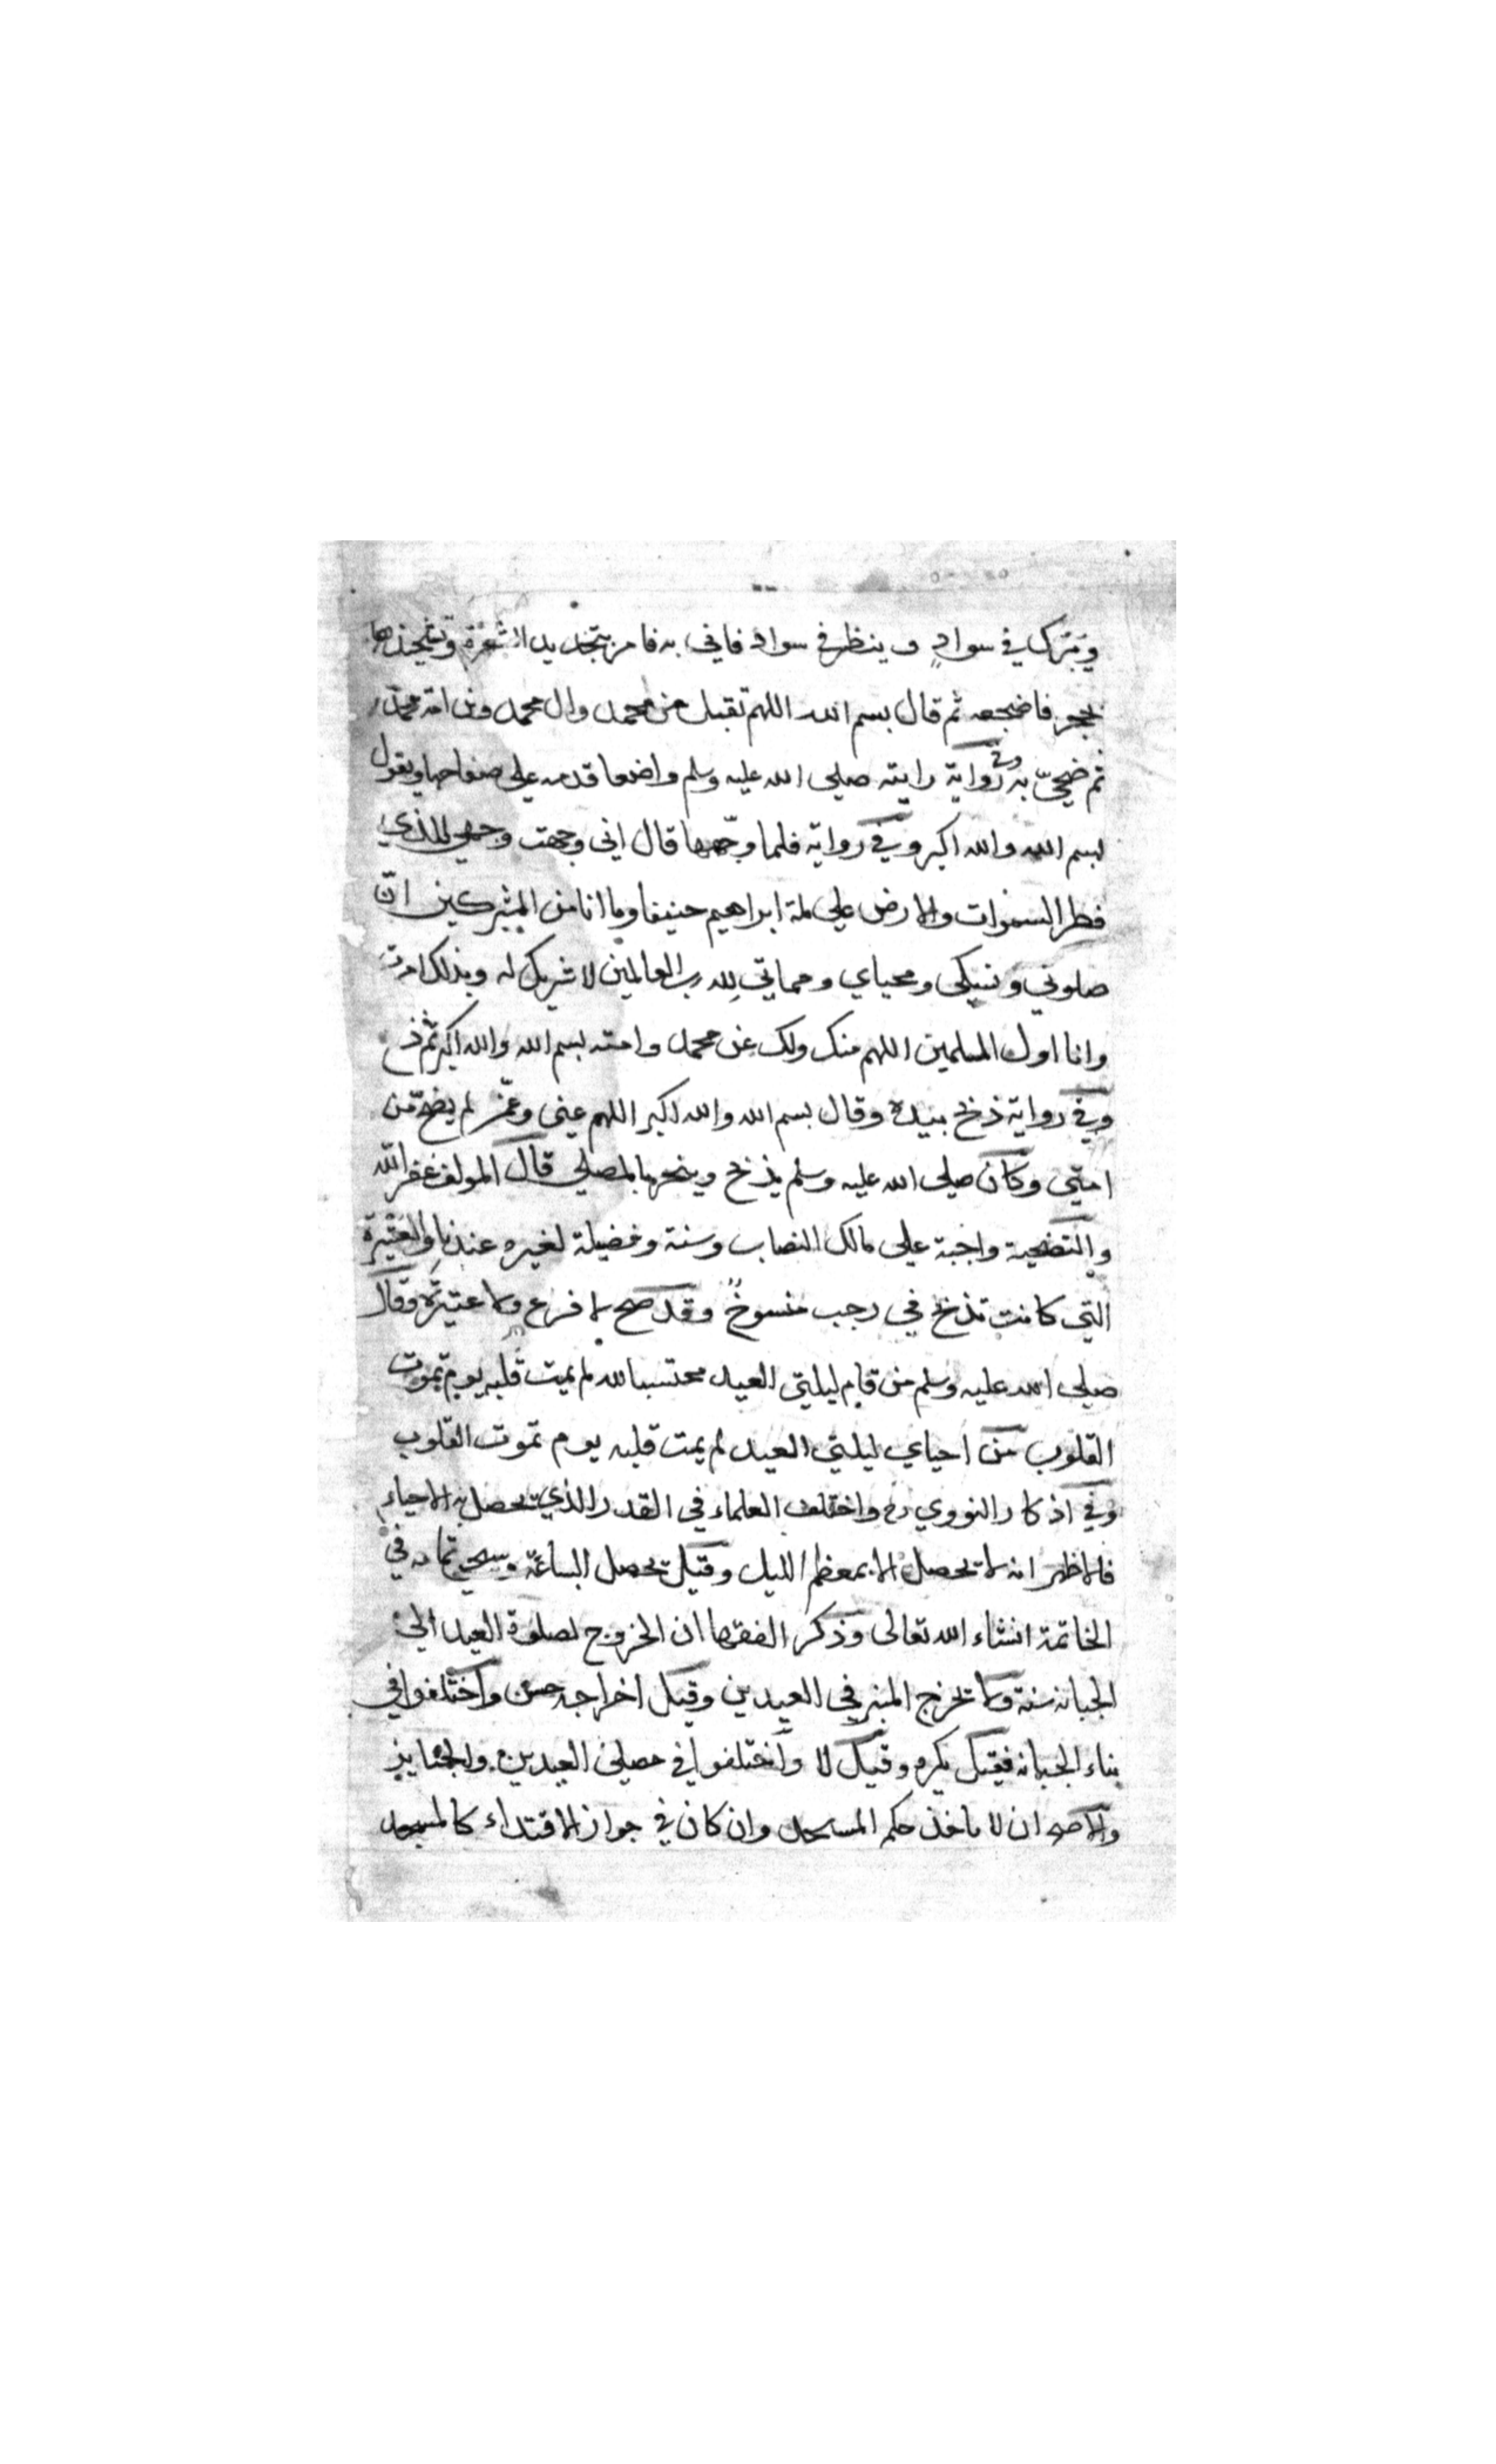 ويبرك في سوادٍ وينظر في سواد فاتي به فامر بتحديد الشفرة وتشحيذها
بحجر فاضجعه ثم قال بسم الله اللهم تقبل من محمد وال محمد ومن امة محمد
ثم ضحيّ به وفي رواية رايته صلى الله عليه وسلم واضعا قدمه علي صفاحها ويقول
بسم الله والله اكبر وفي رواية فلما وجّهها قال اني وجهت وجهي للذي
فطر السموات والارض علي ملة ابراهيم حنيفا وما انا من المشركين انّ
صلوتي ونسكي ومحياي ومماتي لله رب العالمين لا شريك له وبذلك امرت
وانا اول المسلمين اللهم منك ولك عن محمد وامته بسم الله والله اكبر ثم ذبح
وفي رواية ذبح بيده وقال بسم الله والله اكبر اللهم عني وعمّن لم يضحّ من
امتي وكان صلى الله عليه وسلم يذبح وينحر بالمصلي قال المولف غفر الله
والتضحية واجبة على مالك النصاب وسنة وفضيلة لغيره عندنا والعتيرة
التي كانت تذبح في رجب منسوخ وقد صح لا فرع ولا عتيرة وقال
صلى الله عليه وسلم من قام ليلتي العيد محتسبا لله لم يمت قلبه يوم تموت
القلوب من احياي ليلتي العيد لم يمت قلبه يوم تموت القلوب
وفي اذكار النووي رح واختلف العلماء في القدر الذي يحصل به الاحياء
فالاظهر انه لا يحصل الا بمعظم الليل وقيل يحصل الساعة وسيجي تمامه في
الخاتمة انشاء الله تعالى وذكر الفقها ان الخروج لصلوة العيد الي
الجبانة سنة ولا يخرج المنبر في العيدين وقيل اخراجه حسن واختلفوا في
بناء الجبانة فقيل يكره وقيل لا واختلفوا في مصلي العيدين والجنايز
والاصح ان لا ياخذ حكم المسجد وان كان في جواز الاقتداء كالمسجد